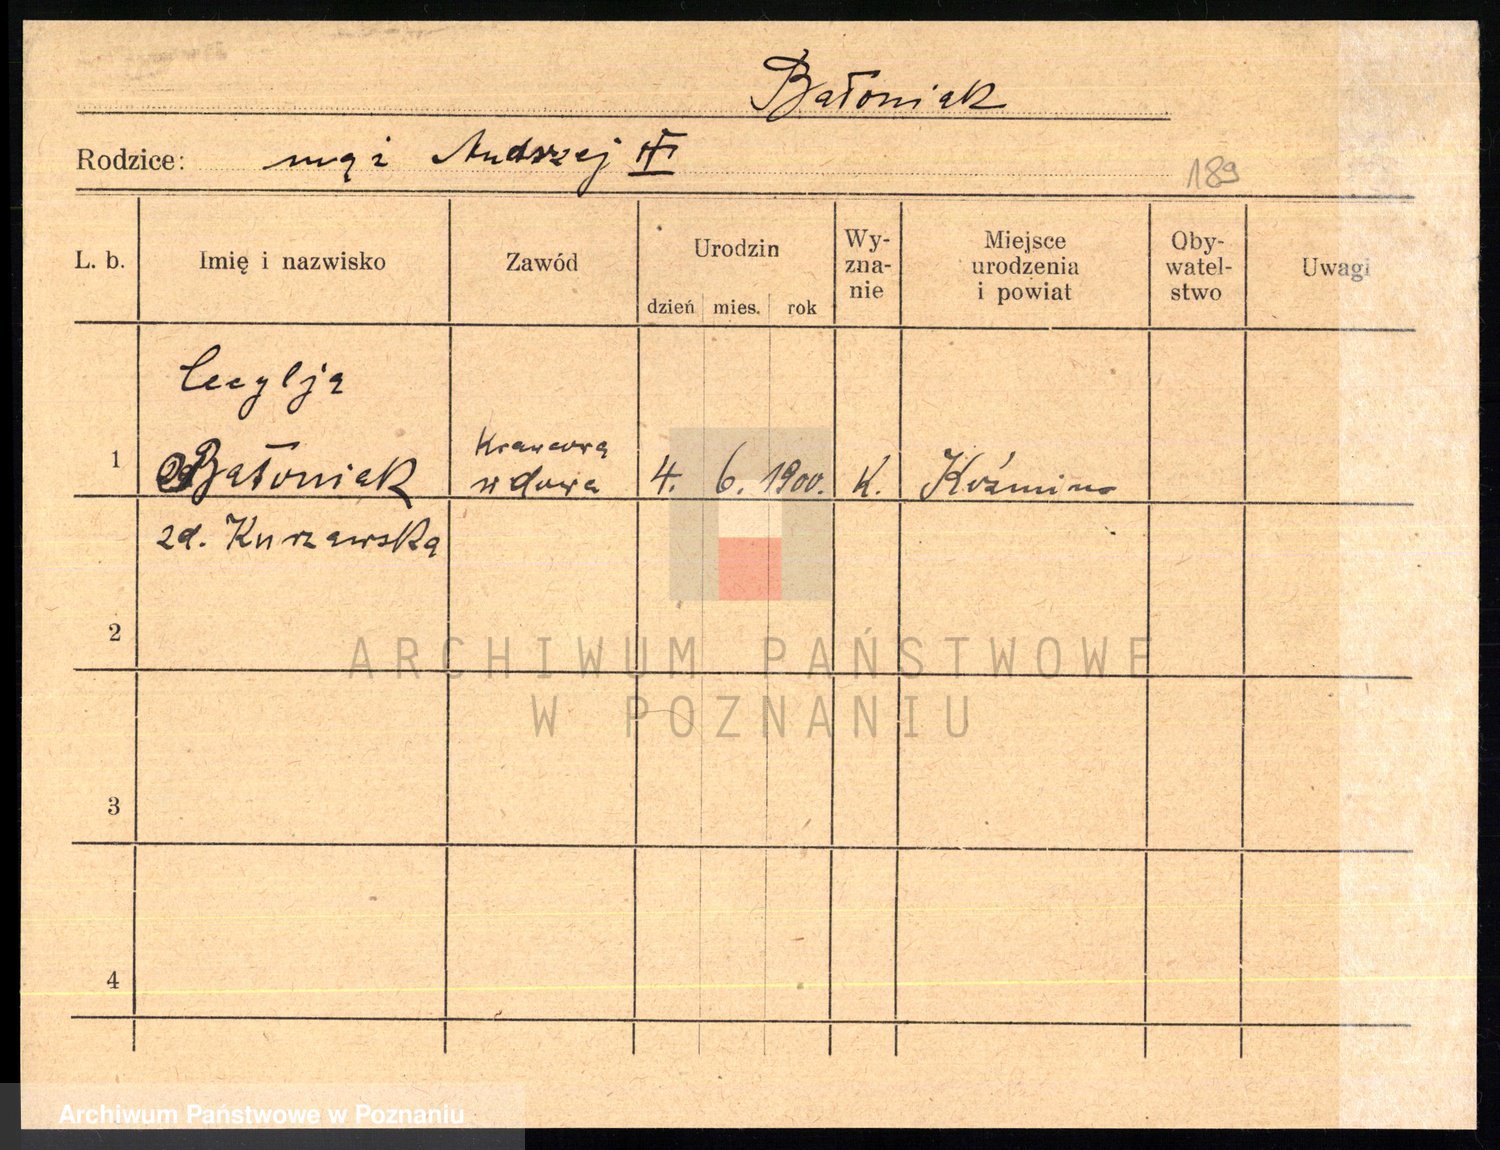 Bałoniak
Rodzice: mąż Andrzej
189
L. b. Imię i nazwisko Zawód Urodzin dzień mies. rok Wy-zna-nie Miejsce urodzenia i powiat Oby-watel-stwo Uwagi
Cecylja
1 Bałoniak Krawcowa wdowa 4. 6. 1900. K. Koźmin
zd. Kurzawska
2
3
4
ARCHIWUM PAŃSTWOWE
W POZNANIU
Archiwum Państwowe w Poznaniu